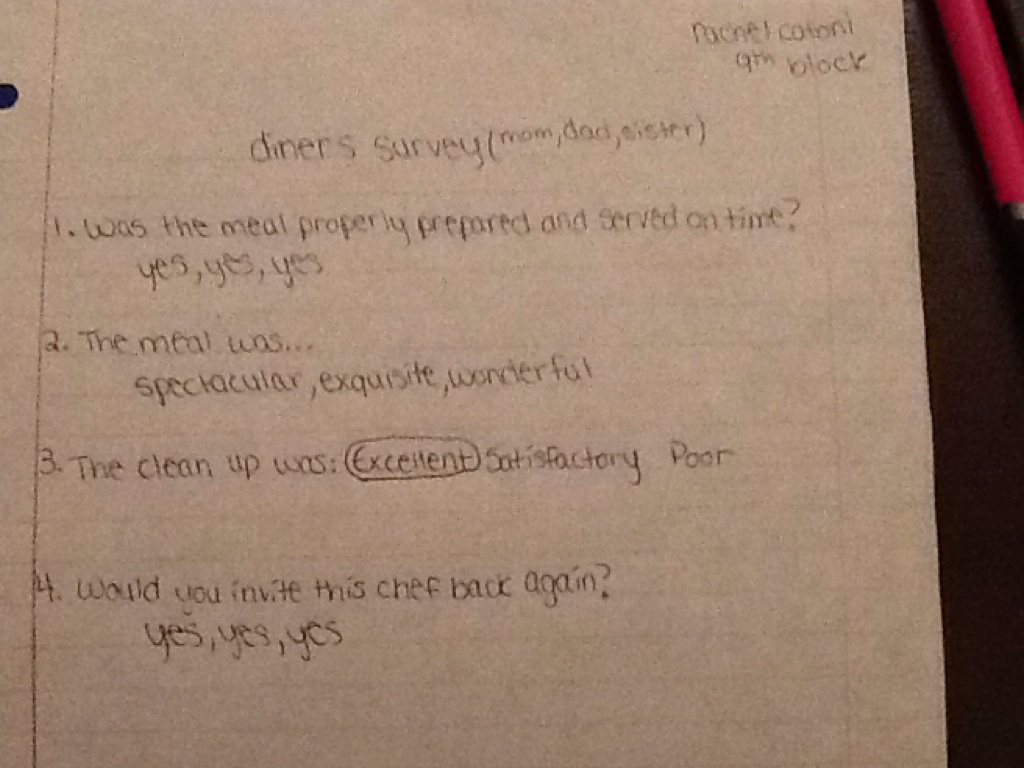 rachel catoni
9th block
diners survey (mom, dad, sister)
1. Was the meal properly prepared and served on time?
yes, yes, yes
2. The meal was...
spectacular, exquisite, wonderful
3. The clean up was: Excellent Satisfactory Poor
4. Would you invite this chef back again?
yes, yes, yes